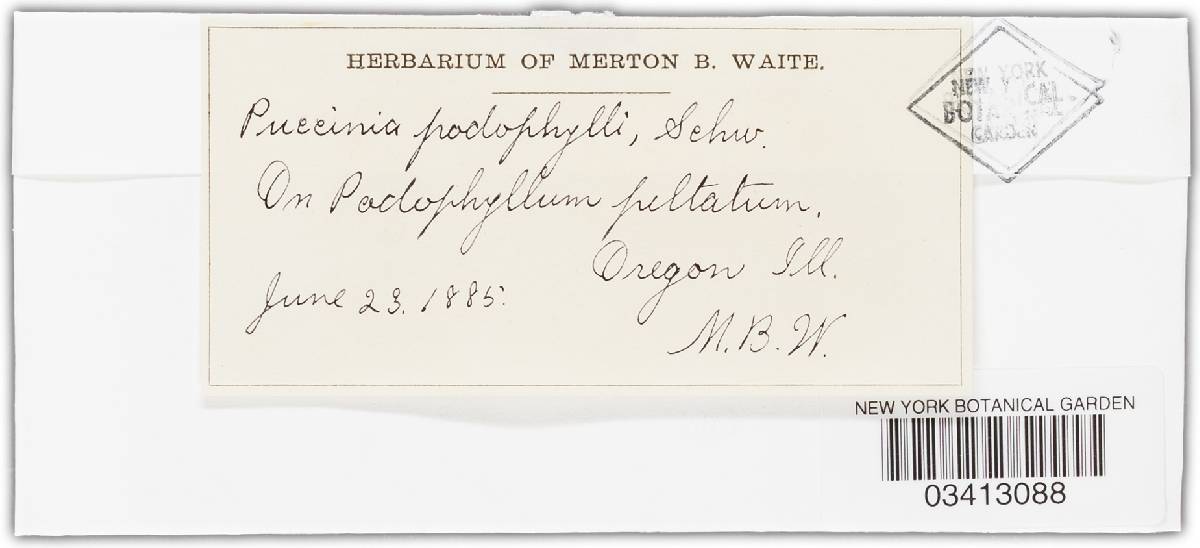 HERBARIUM OF MERTON B. WAITE.
Puccinia podophylli, Schw.
On Podophyllum peltatum.
Oregon Ill.
June 23. 1885.
M. B. W.
NEW YORK
BOTANICAL
GARDEN
NEW YORK BOTANICAL GARDEN
03413088